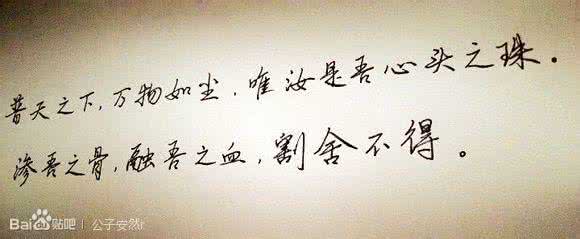 普天之下,万物如尘,唯汝是吾心头之珠.
渗吾之骨,融吾之血,割舍不得。
Bai du 贴吧 | 公子安然r